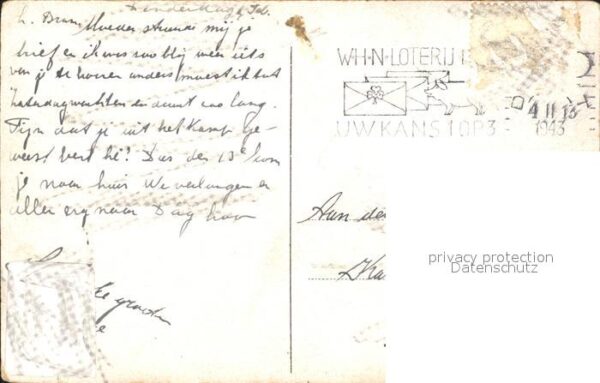 Donderdag 4 Feb.
L. Bram, Moeder stuurde mij je
brief en ik was zoo blij weer iets
van je te hooren anders moest ik tot
Zaterdag wachten en duurt zoo lang.
Fijn dat je uit het kamp ge-
weest bent hè! Dus den 13e kom
je naar huis We verlangen er
allen erg naar Dag hoor
groeten
W·H·N·LOTERIJ
UW KANS 1 OP 3
4 II 13
1943
Aan de
privacy protection
Datenschutz